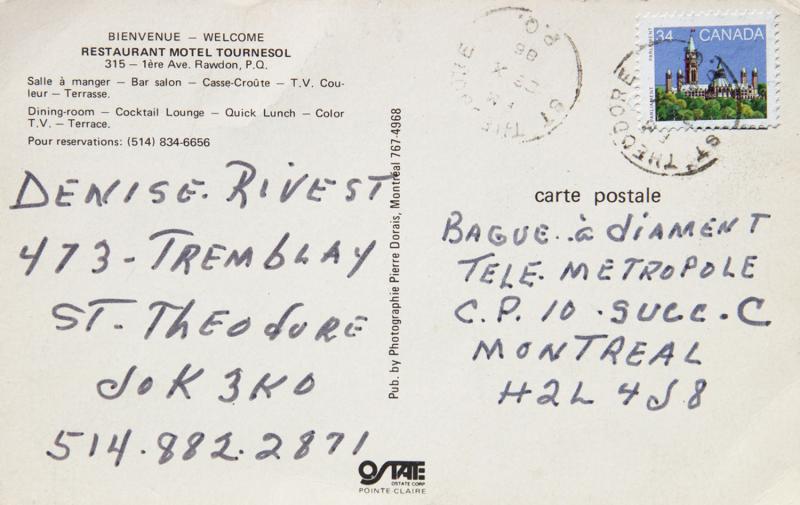 BIENVENUE — WELCOME
RESTAURANT MOTEL TOURNESOL
315 — 1ère Ave. Rawdon, P.Q.
Salle à manger — Bar salon — Casse-Croûte — T.V. Cou-
leur — Terrasse.
Dining-room — Cocktail Lounge — Quick Lunch — Color
T.V. — Terrace.
Pour reservations: (514) 834-6656
DENISE. RIVEST
473 - TREMBLAY
ST. THEODORE
JOK 3KO
514.882.2871
Pub. by Photographie Pierre Dorais, Montréal 767-4968
OSTATE
OSTATE CORP
POINTE-CLAIRE
34 CANADA
PARLIAMENT
PARLEMENT
ST THEODORE
P.Q.
86
ST THEODORE
carte postale
BAGUE..à diAMENT
TELE. METROPOLE
C.P. 10 . SUCC. C
MONTREAL
H2L 4J8